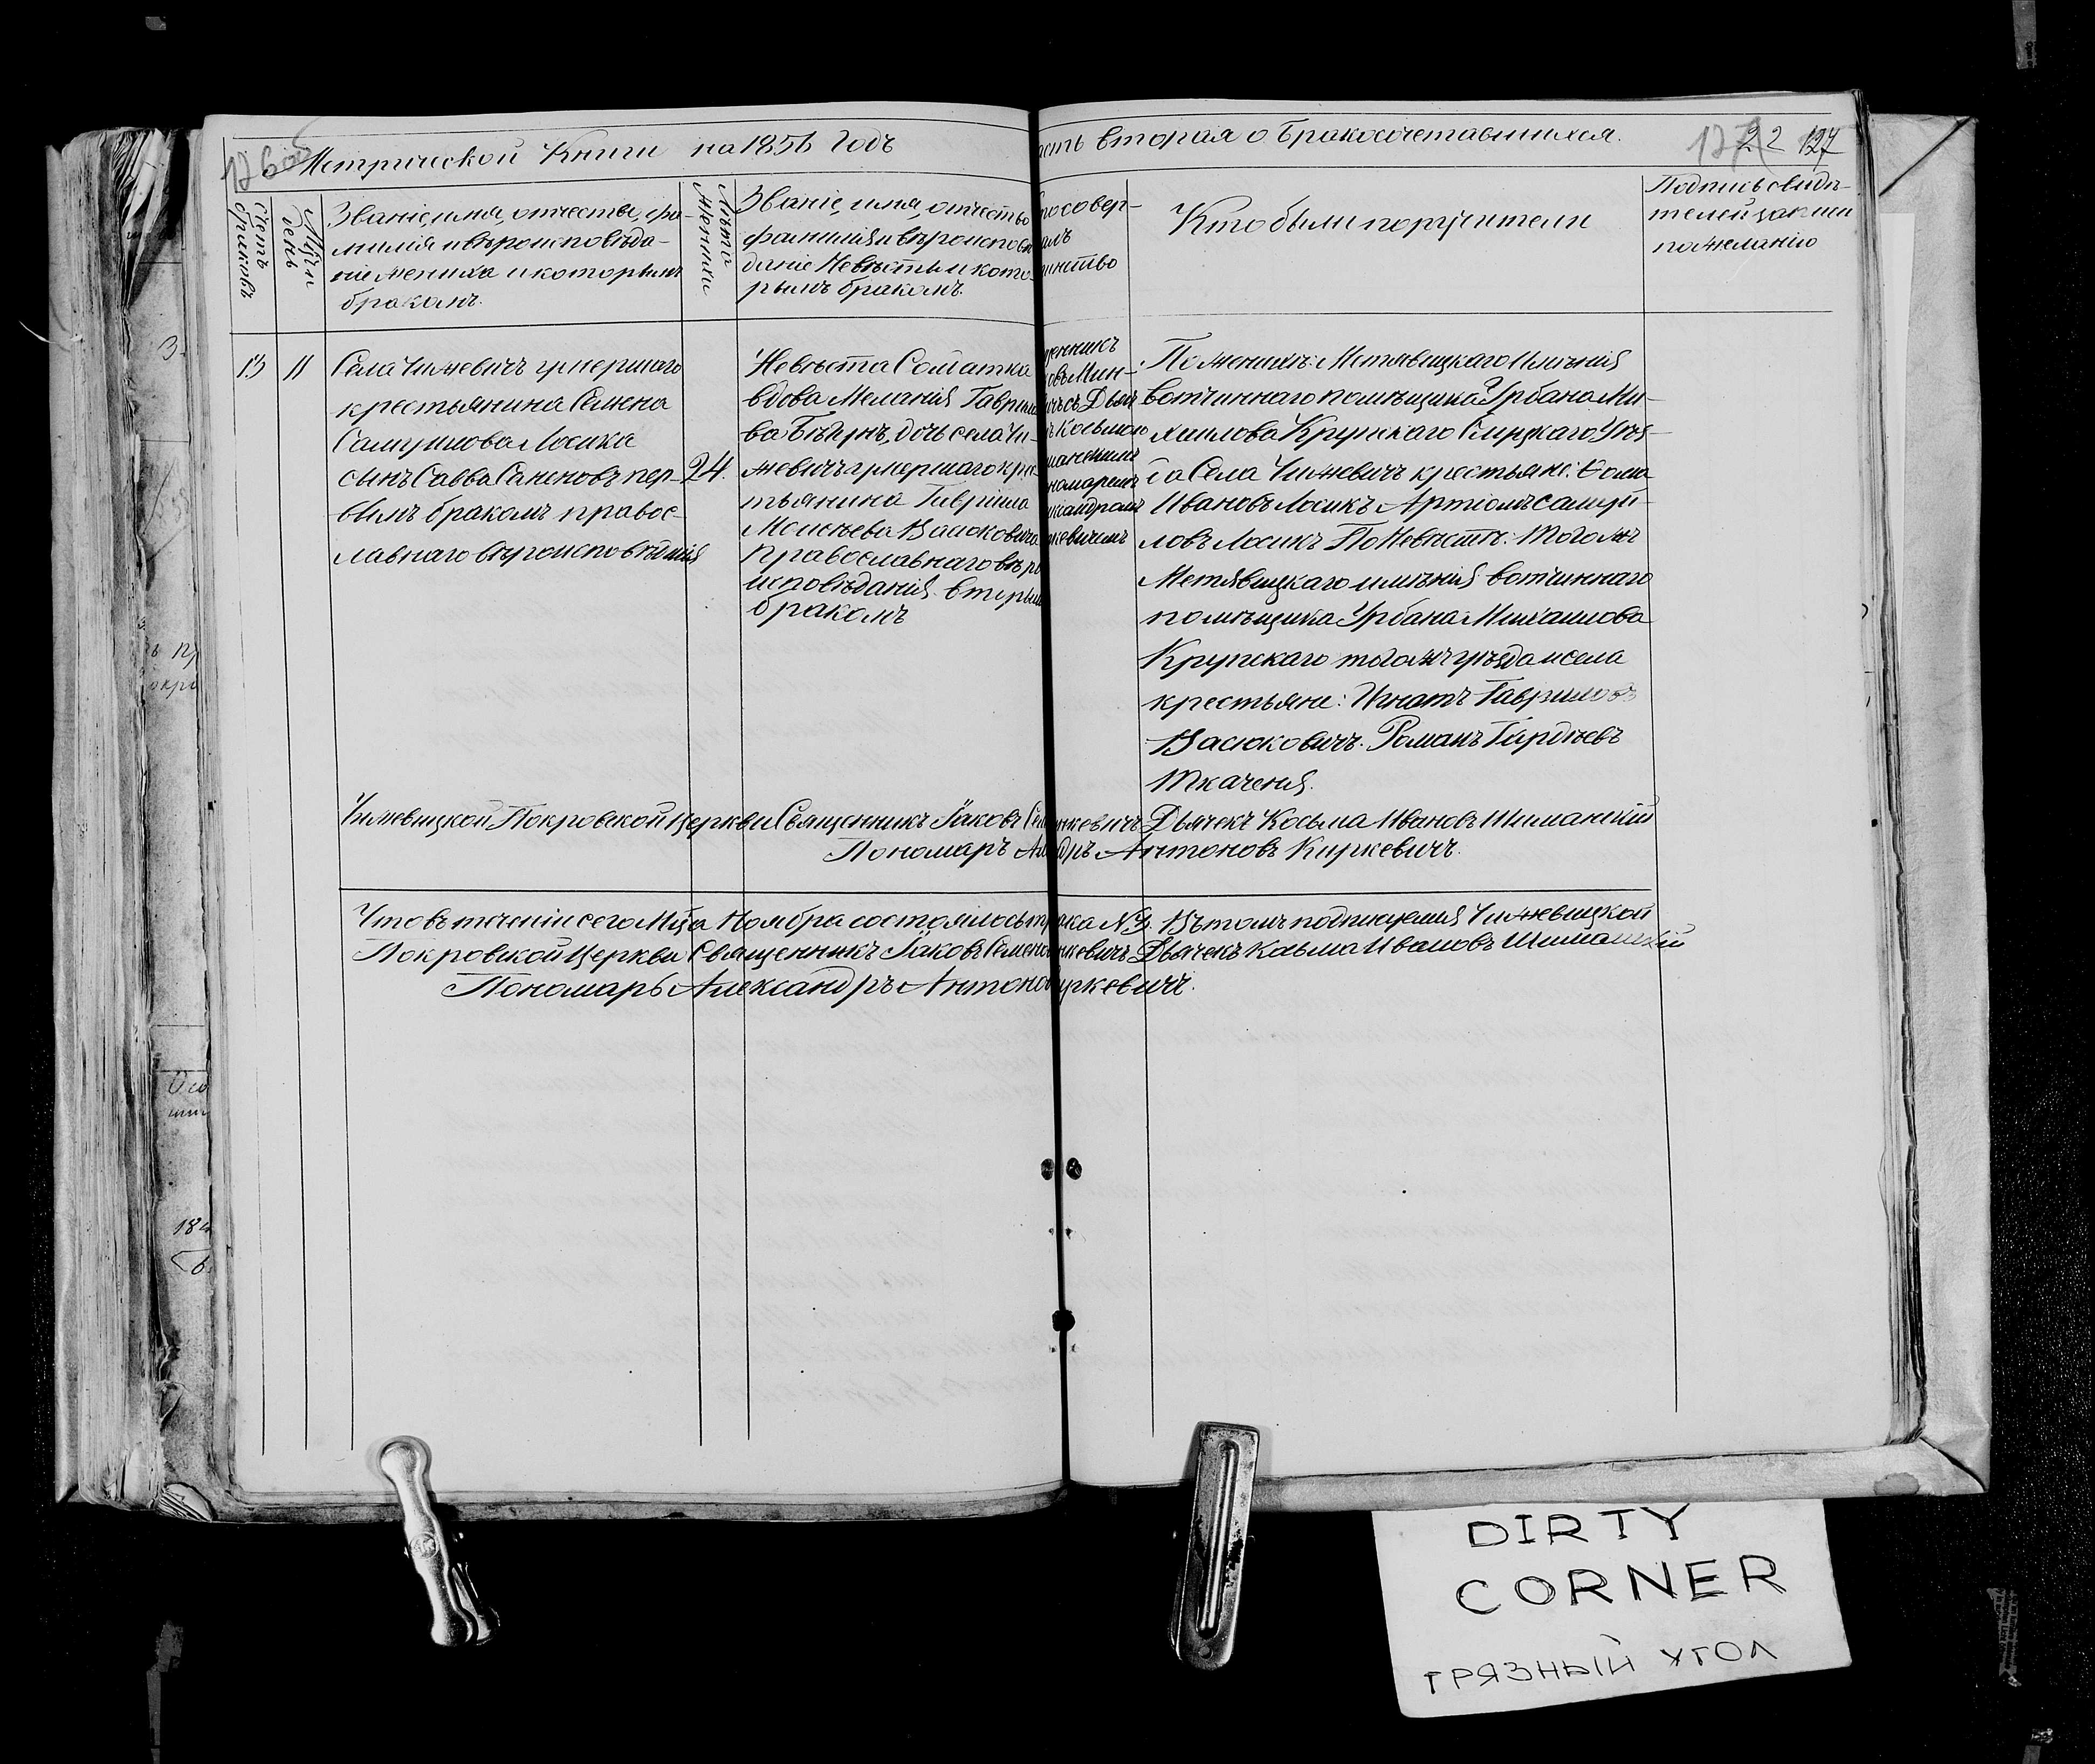 Метрической Книги на 1856 Годъ
асть вторая о Бракосочетавшихся.
22 127
Счетъ браковъ
Мцъ и день
Званіе, имя, отчество, фа-
милія и вѣроисповѣда-
ніе жениха и которымъ
бракомъ.
Лѣта жениха
Званіе, имя, отчество
фамилія и вѣроисповѣ
даніе Невѣсты и кото-
рымъ бракомъ.
то совер-
алъ
инство
Кто были поручители
Подпись свидѣ-
телей записи
по желанію
13 11
Села Чижевичъ умершаго
крестьянина Семена
Самуилова Лосика
сынъ Савва Семеновъ пер-
вымъ бракомъ правос-
лавнаго вѣроисповѣданія
24.
Невѣста Солдатка
вдова Меланія Гаврило
ва Бѣгунъ, дочь села Чи-
жевичъ умершаго крес
тьянина Гавріила
Моисѣева Васюковича
Православнаго вѣро
исповѣданія вторым
бракомъ
щенникъ
овъ Мин-
ичъ съ Дьяч
ъ Косьмою
маненимъ
номаремъ
ксандромъ
ркевичемъ
По женихѣ: Метявицкаго Имѣнія
вотчиннаго помѣщика Урбана Ми-
хаилова Крупскаго Слуцкаго Уѣз-
да Села Чижевичъ крестьяне: Ѳома
Ивановъ Лосикъ Артіомъ Самуй-
ловъ Лосикъ По Невѣстѣ: Того жъ
Метявицкаго имѣнія вотчиннаго
помѣщика Урбана Михаилова
Крупскаго того жъ уѣзда и села
крестьяне: Игнатъ Гавриловъ
Васюковичъ. Романъ Гордѣевъ
Ткаченя.
Чижевицкой Покровской Церкви Священникъ Іаковъ Сем нкевичъ Дьячекъ Косьма Ивановъ Шиманскій
Пономаръ Ал ндръ Антоновъ Киркевичъ.
Что въ теченіи сего Мца Ноября состоялось брака №3. Въ томъ подписуемся Чижевицкой
Покровской Церкви Священникъ Іаковъ Семено нкевичъ Дьячекъ Косьма Ивановъ Шиманскій
Пономаръ Александръ Антонов уркевичъ.
DIRTY
CORNER
ГРЯЗНЫЙ УГОЛ